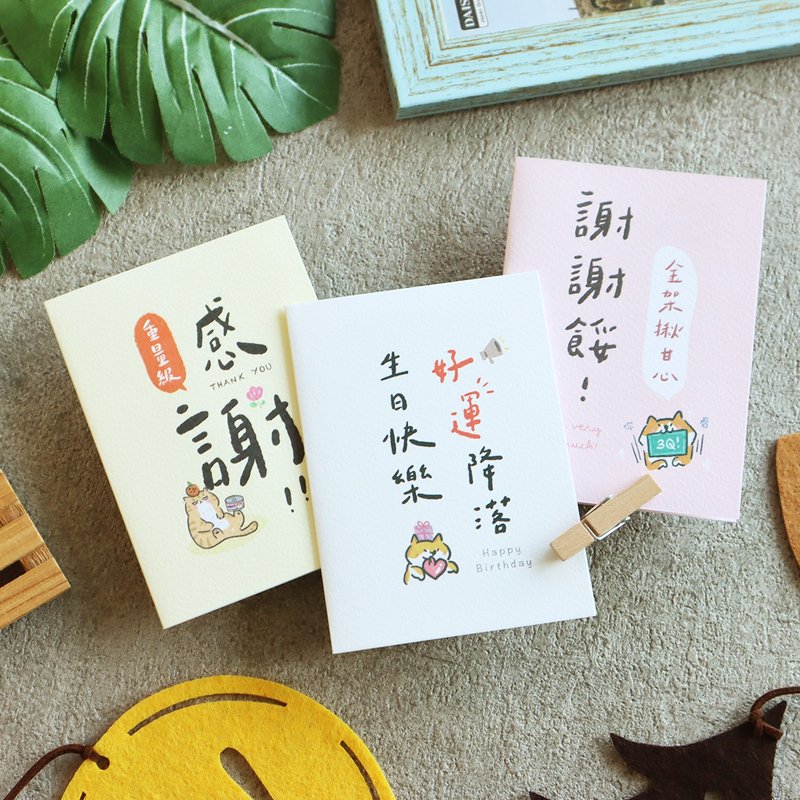 重量級
感
THANK YOU
謝
!!
好運降落
生日快樂
Happy
Birthday
謝謝餒!
全架揪甘心
very
much!
你
看
3Q!
DAIS